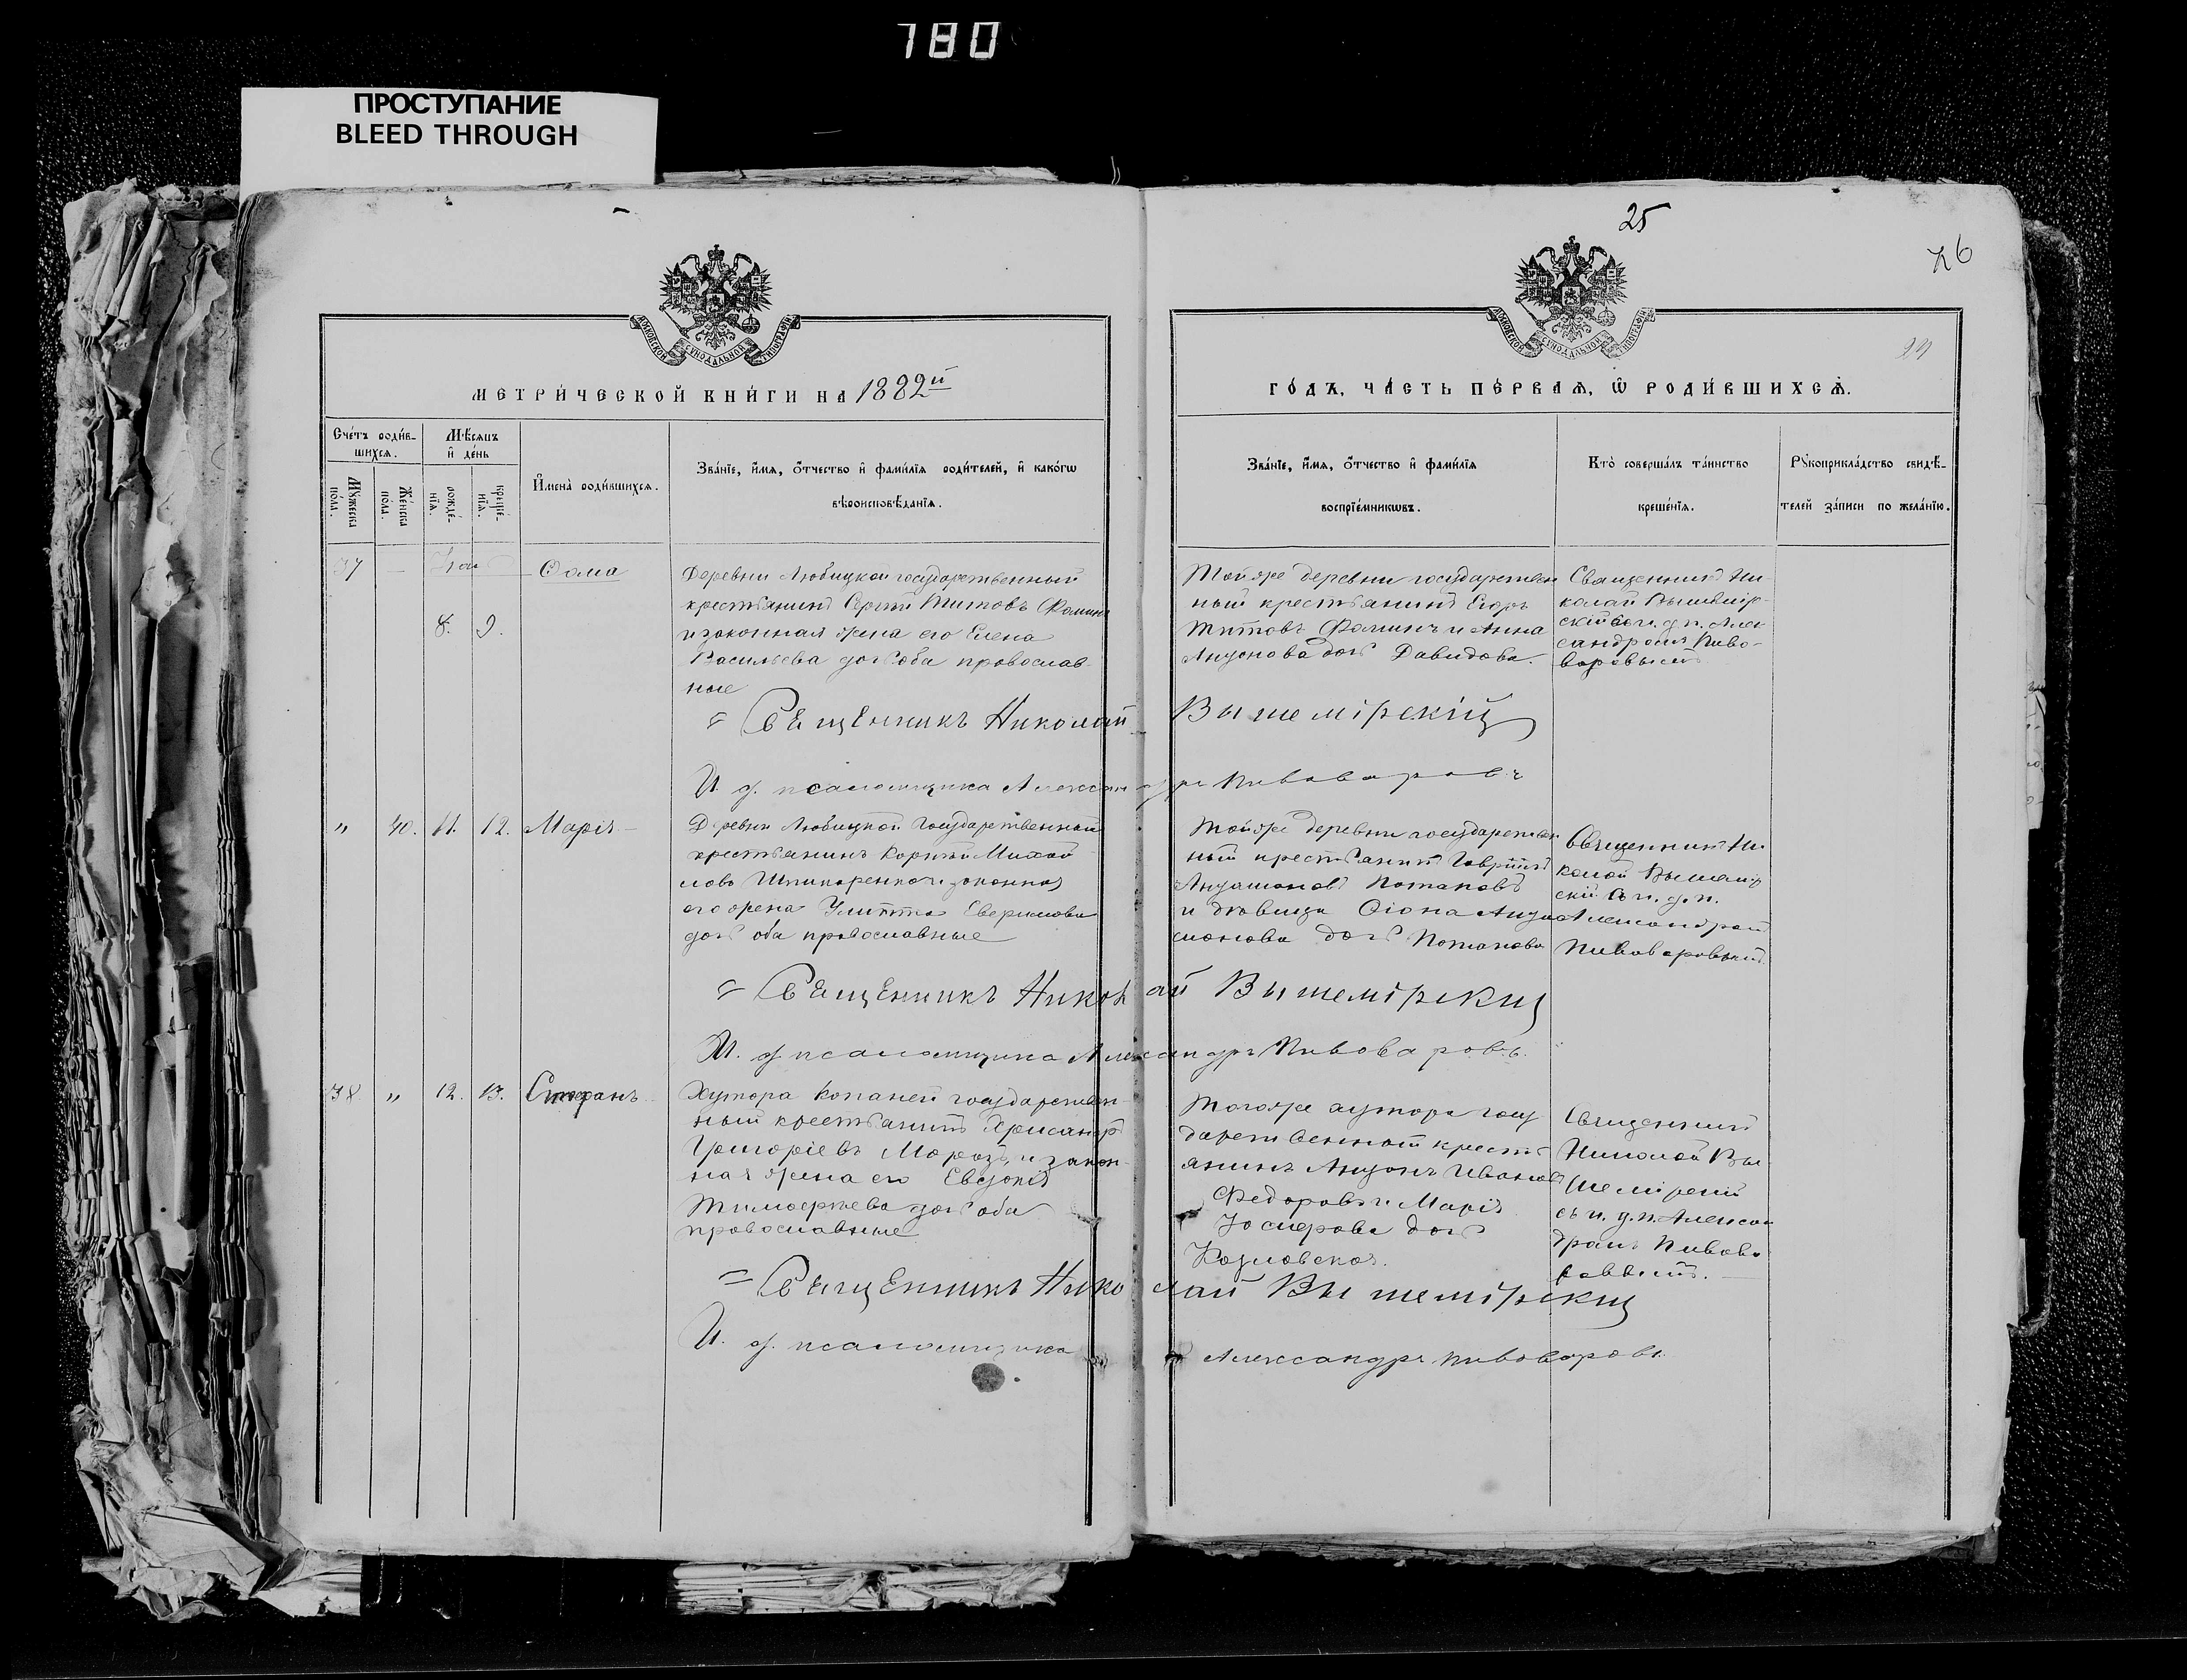 780
ПРОСТУПАНИЕ
BLEED THROUGH
25
76
МОСКОВСКОЙ СѴНОДАЛЬНОЙ ТИПОГРАФІИ
МОСКОВСКОЙ СѴНОДАЛЬНОЙ ТИПОГРАФІИ
МЕТРИ́ЧЕСКОЙ КНИ́ГИ НА 1882й
ГО́ДЪ, ЧА́СТЬ ПЕ́РВАЯ, Ѡ҆ РОДИ́ВШИХСЯ.
Сче́тъ роди́в-
шихся.
Мѣсяцъ
и҆ де́нь
Мꙋ́жеска
по́ла.
Же́нска
по́ла.
рожде́-
нїя.
креще́-
нїя.
И҆мена̀ роди́вшихся.
Зва́нїе, и҆́мя, ѻ҆́тчество и҆ фами́лїя роди́телей, и҆ како́гѡ
вѣроисповѣ́данїя.
Зва́нїе, и҆́мя, ѻ҆́тчество и҆ фами́лїя
воспрїе́мникѡвъ.
Кто̀ соверша́лъ та́инство
креще́нїя.
Рꙋкоприкла́дство свидѣ́-
телей за́писи по жела́нїю.
37
8. 9.
Ѳома
Деревни Любицкой государственный
крестьянинъ Сергій Титовъ Фоминъ
и законная жена его Елена
Васильева дочь оба православ-
ные
Тойже деревни государствен
ный крестьянинъ Егоръ
Титовъ Фоминъ и Анна
дочь Давидова.
Священникъ Ни-
колай Вышемір-
скій съ и. д. п. Алек
сандромъ Пиво-
варовымъ
Священникъ Николай Вышемірскій
И. д. псаломщика Александръ Пивоваровъ
" 40. 11. 12. Марія
Деревни Любицкой Государственный
крестьянинъ Михай
лова и законная
его жена
дочь оба православные
Тойже деревни государствен
ный крестьянинъ Гавріилъ
Потаповъ
и дѣвица
дочь Потапова
Священникъ Ни
колай Вышемір
скій съ и. д. п.
Александромъ
Пивоваровымъ
Священникъ Николай Вышемірскій
И. д. псаломщика Александръ Пивоваровъ.
38 " 12. 13. Стефанъ
Хутора Копаней государствен-
ный крестьянинъ Хрисанфъ
Григоріевъ Морозъ и закон-
ная жена его Евдокія
Тимофеева дочь оба
православные
Тогоже хутора госу
дарственный кресть
янинъ Иванов
Федоровъ и Марія
Іосифова дочь
Козловская.
Священникъ
Николай Вы-
шемірскій
съ и. д. п. Алексан
дромъ Пивова
ровымъ.
Священникъ Николай Вышемірскій
И. д. псаломщика Александръ Пивоваровъ